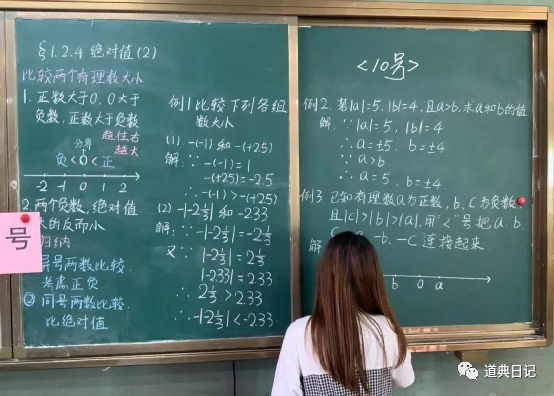 §1.2.4 绝对值(2)
比较两个有理数大小
1. 正数大于0,0大于
负数,正数大于负数
越往右
越大
分界
负<0<正
-2 -1 0 1 2
2.两个负数,绝对值
大的反而小
归纳
异号两数比较,
考虑正负
② 同号两数比较,
比绝对值
号
例1 比较下列各组
数大小
(1) -(-1)和 -(+2.5)
解: ∵ -(-1)=1
-(+2.5)=-2.5
∴ -(-1)>-(+2.5)
(2) -|-2⅓|和 -2.33
解: ∵ -|-2⅓|=-2⅓
又∵ |-2⅓|=2⅓
|-2.33|=2.33
∵ 2⅓>2.33
∴ -|-2⅓|<-2.33
<10号>
例2. 若|a|=5, |b|=4, 且a>b, 求a和b的值
解: ∵ |a|=5, |b|=4
∴ a=±5, b=±4
∵ a>b
∴ a=5, b=±4
例3 已知有理数a为正数, b、c为负数,
且|c|>|b|>|a|, 用"<"号把a、b、
-b、-c连接起来
解
b 0 a
道典日记